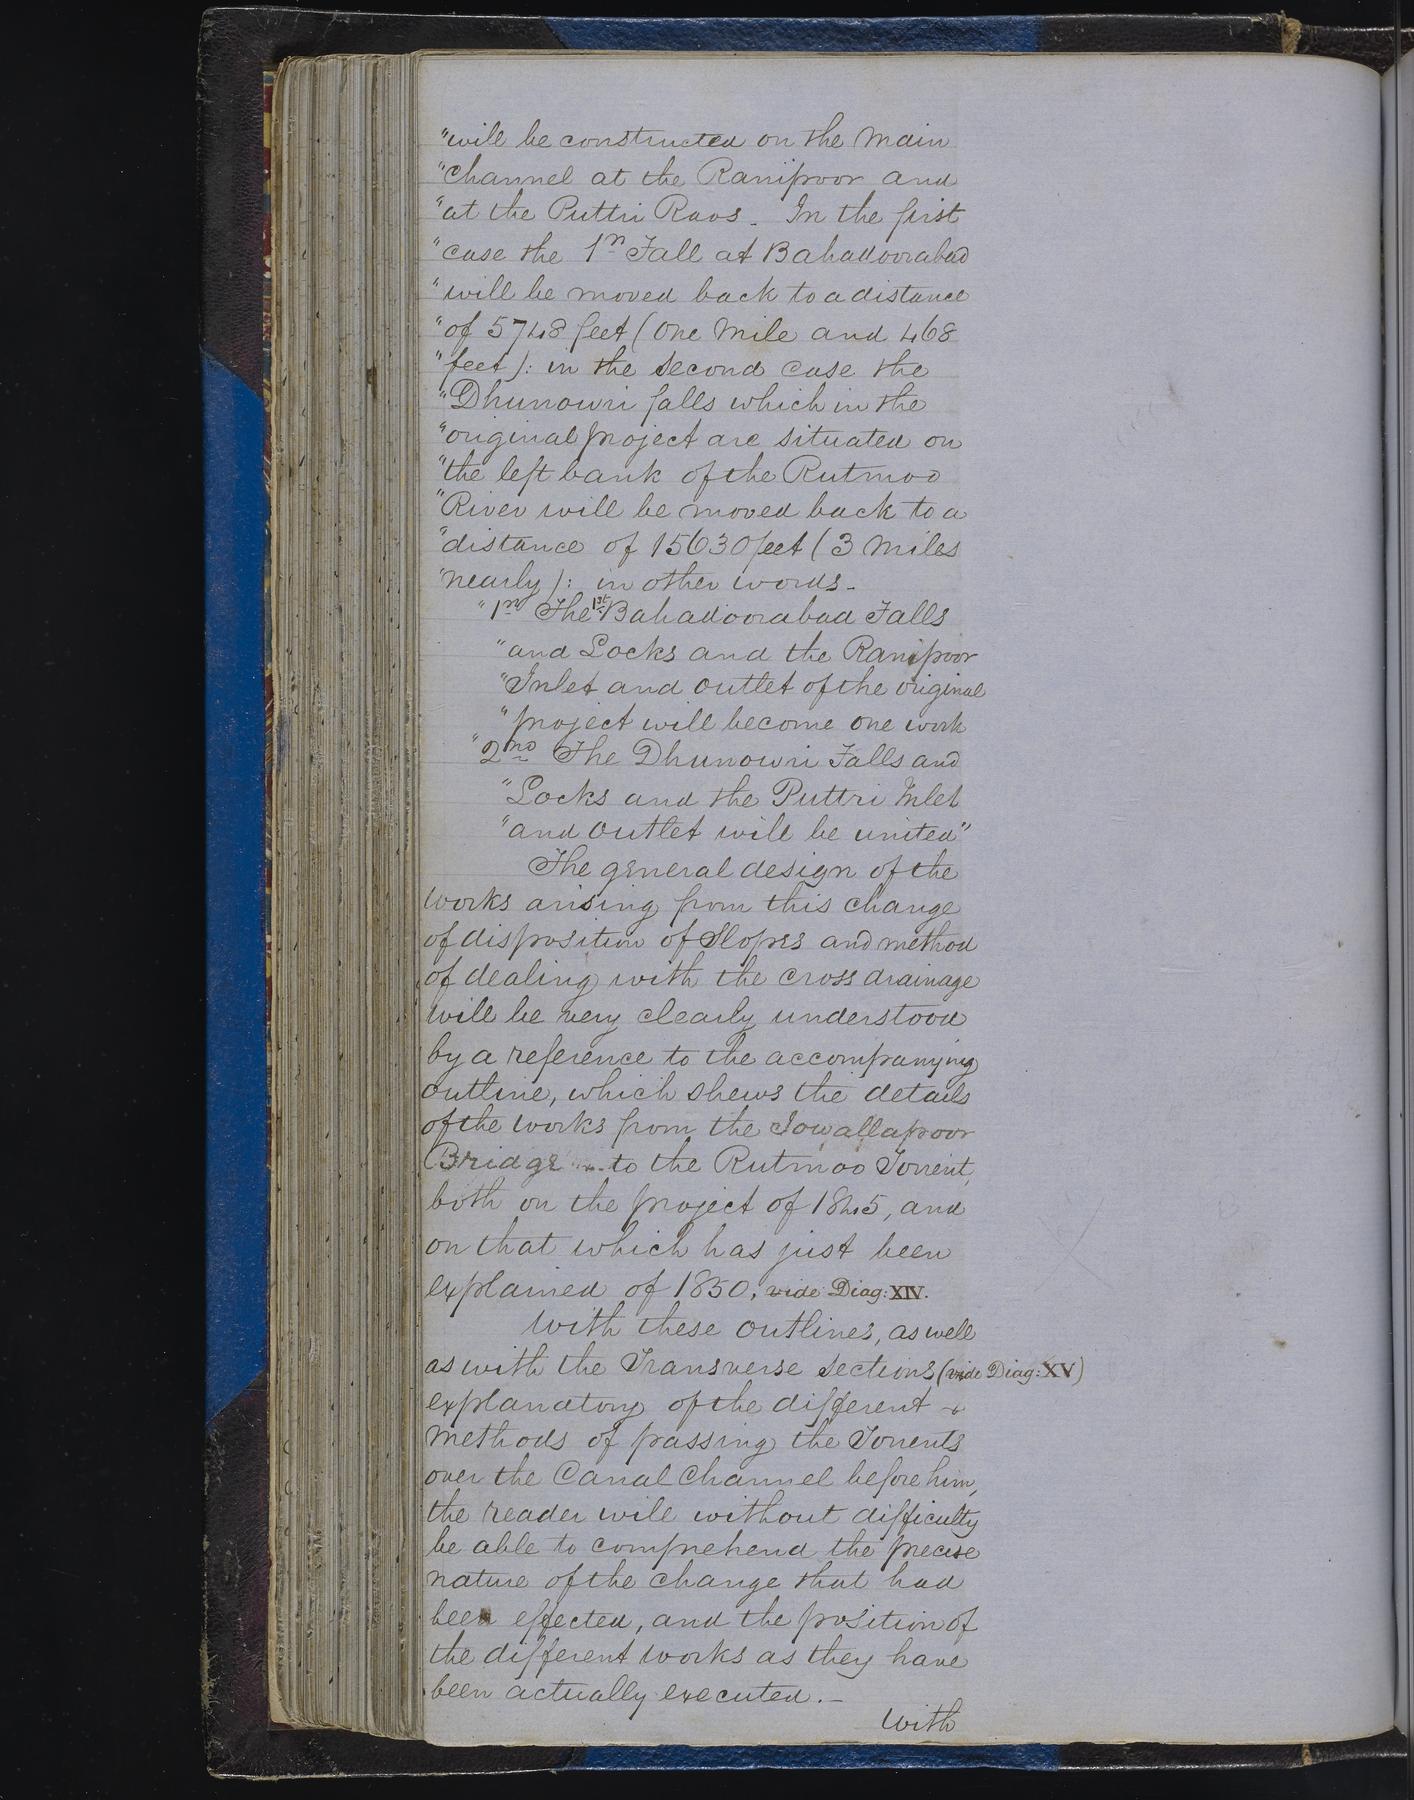 "will be constructed on the Main
"Channel at the Ranipoor and
"at the Puttri Raos. In the first
"case the 1st Fall at Bahadoorabad
"will be moved back to a distance
"of 5748 feet (One Mile and 468
"feet): in the second case the
"Dhunowri falls which in the
"original project are situated on
"the left bank of the Rutmoo
"River will be moved back to a
"distance of 15630 feet (3 Miles
"nearly): in other words -
"1st The 1st Bahadoorabad Falls
"and Locks and the Ranipoor
"Inlet and outlet of the original
"project will become one work
"2nd The Dhunowri Falls and
"Locks and the Puttri Inlet
"and outlet will be united"
The general design of the
works arising from this change
of disposition of Slopes and method
of dealing with the cross drainage
will be very clearly understood
by a reference to the accompanying
outline, which shews the details
of the works from the Jowallapoor
Bridge to the Rutmoo Torrent,
both on the project of 1845, and
on that which has just been
explained of 1850, vide Diag: XIV.
With these outlines, as well
as with the Transverse sections, (vide Diag: XV)
explanatory of the different -
methods of passing the Torrents
over the Canal Channel before him,
the reader will without difficulty
be able to comprehend the precise
nature of the change that had
been effected, and the position of
the different works as they have
been actually executed. -
With